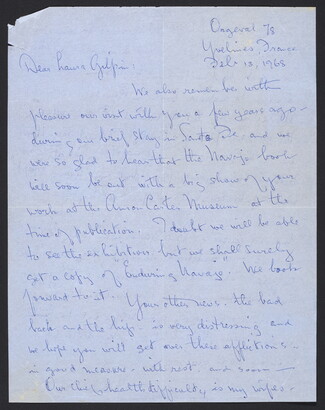 Orgeval 78
Yvelines, France
Feb. 13, 1968
Dear Laura Gilpin:
We also remember with
pleasure our visit with you a few years ago
during our brief stay in Santa Fe and we
were so glad to hear that the Navajo book
will soon be out with a big show of your
work at the Amon Carter Museum at the
time of publication. I doubt we will be able
to see the exhibition, but we shall surely
get a copy of "Enduring Navaho". We look
forward to it. Your other news - the bad
back and the hip - is very distressing and
we hope you will get over these afflictions -
in good measure - with rest and soon -
Our chief health difficulty is my wife's -